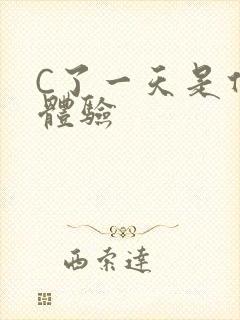 C了一天是什
體驗
西索達